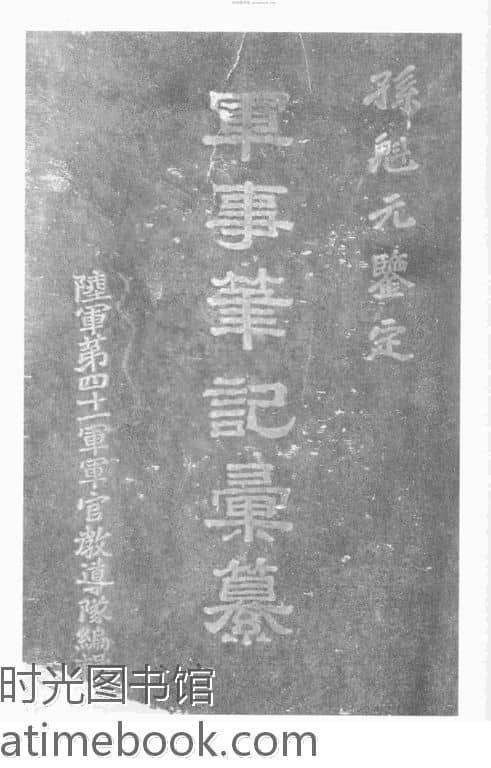 孫魁元鑒定
軍事筆記彙纂
陸軍第四十一軍軍官教導隊編
时光图书馆
atimebook.com